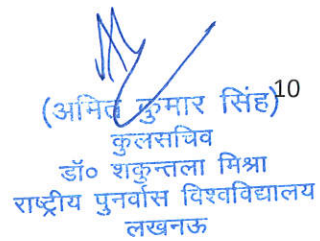 (अमित कुमार सिंह) 10
कुलसचिव
डॉ० शकुन्तला मिश्रा
राष्ट्रीय पुनर्वास विश्वविद्यालय
लखनऊ